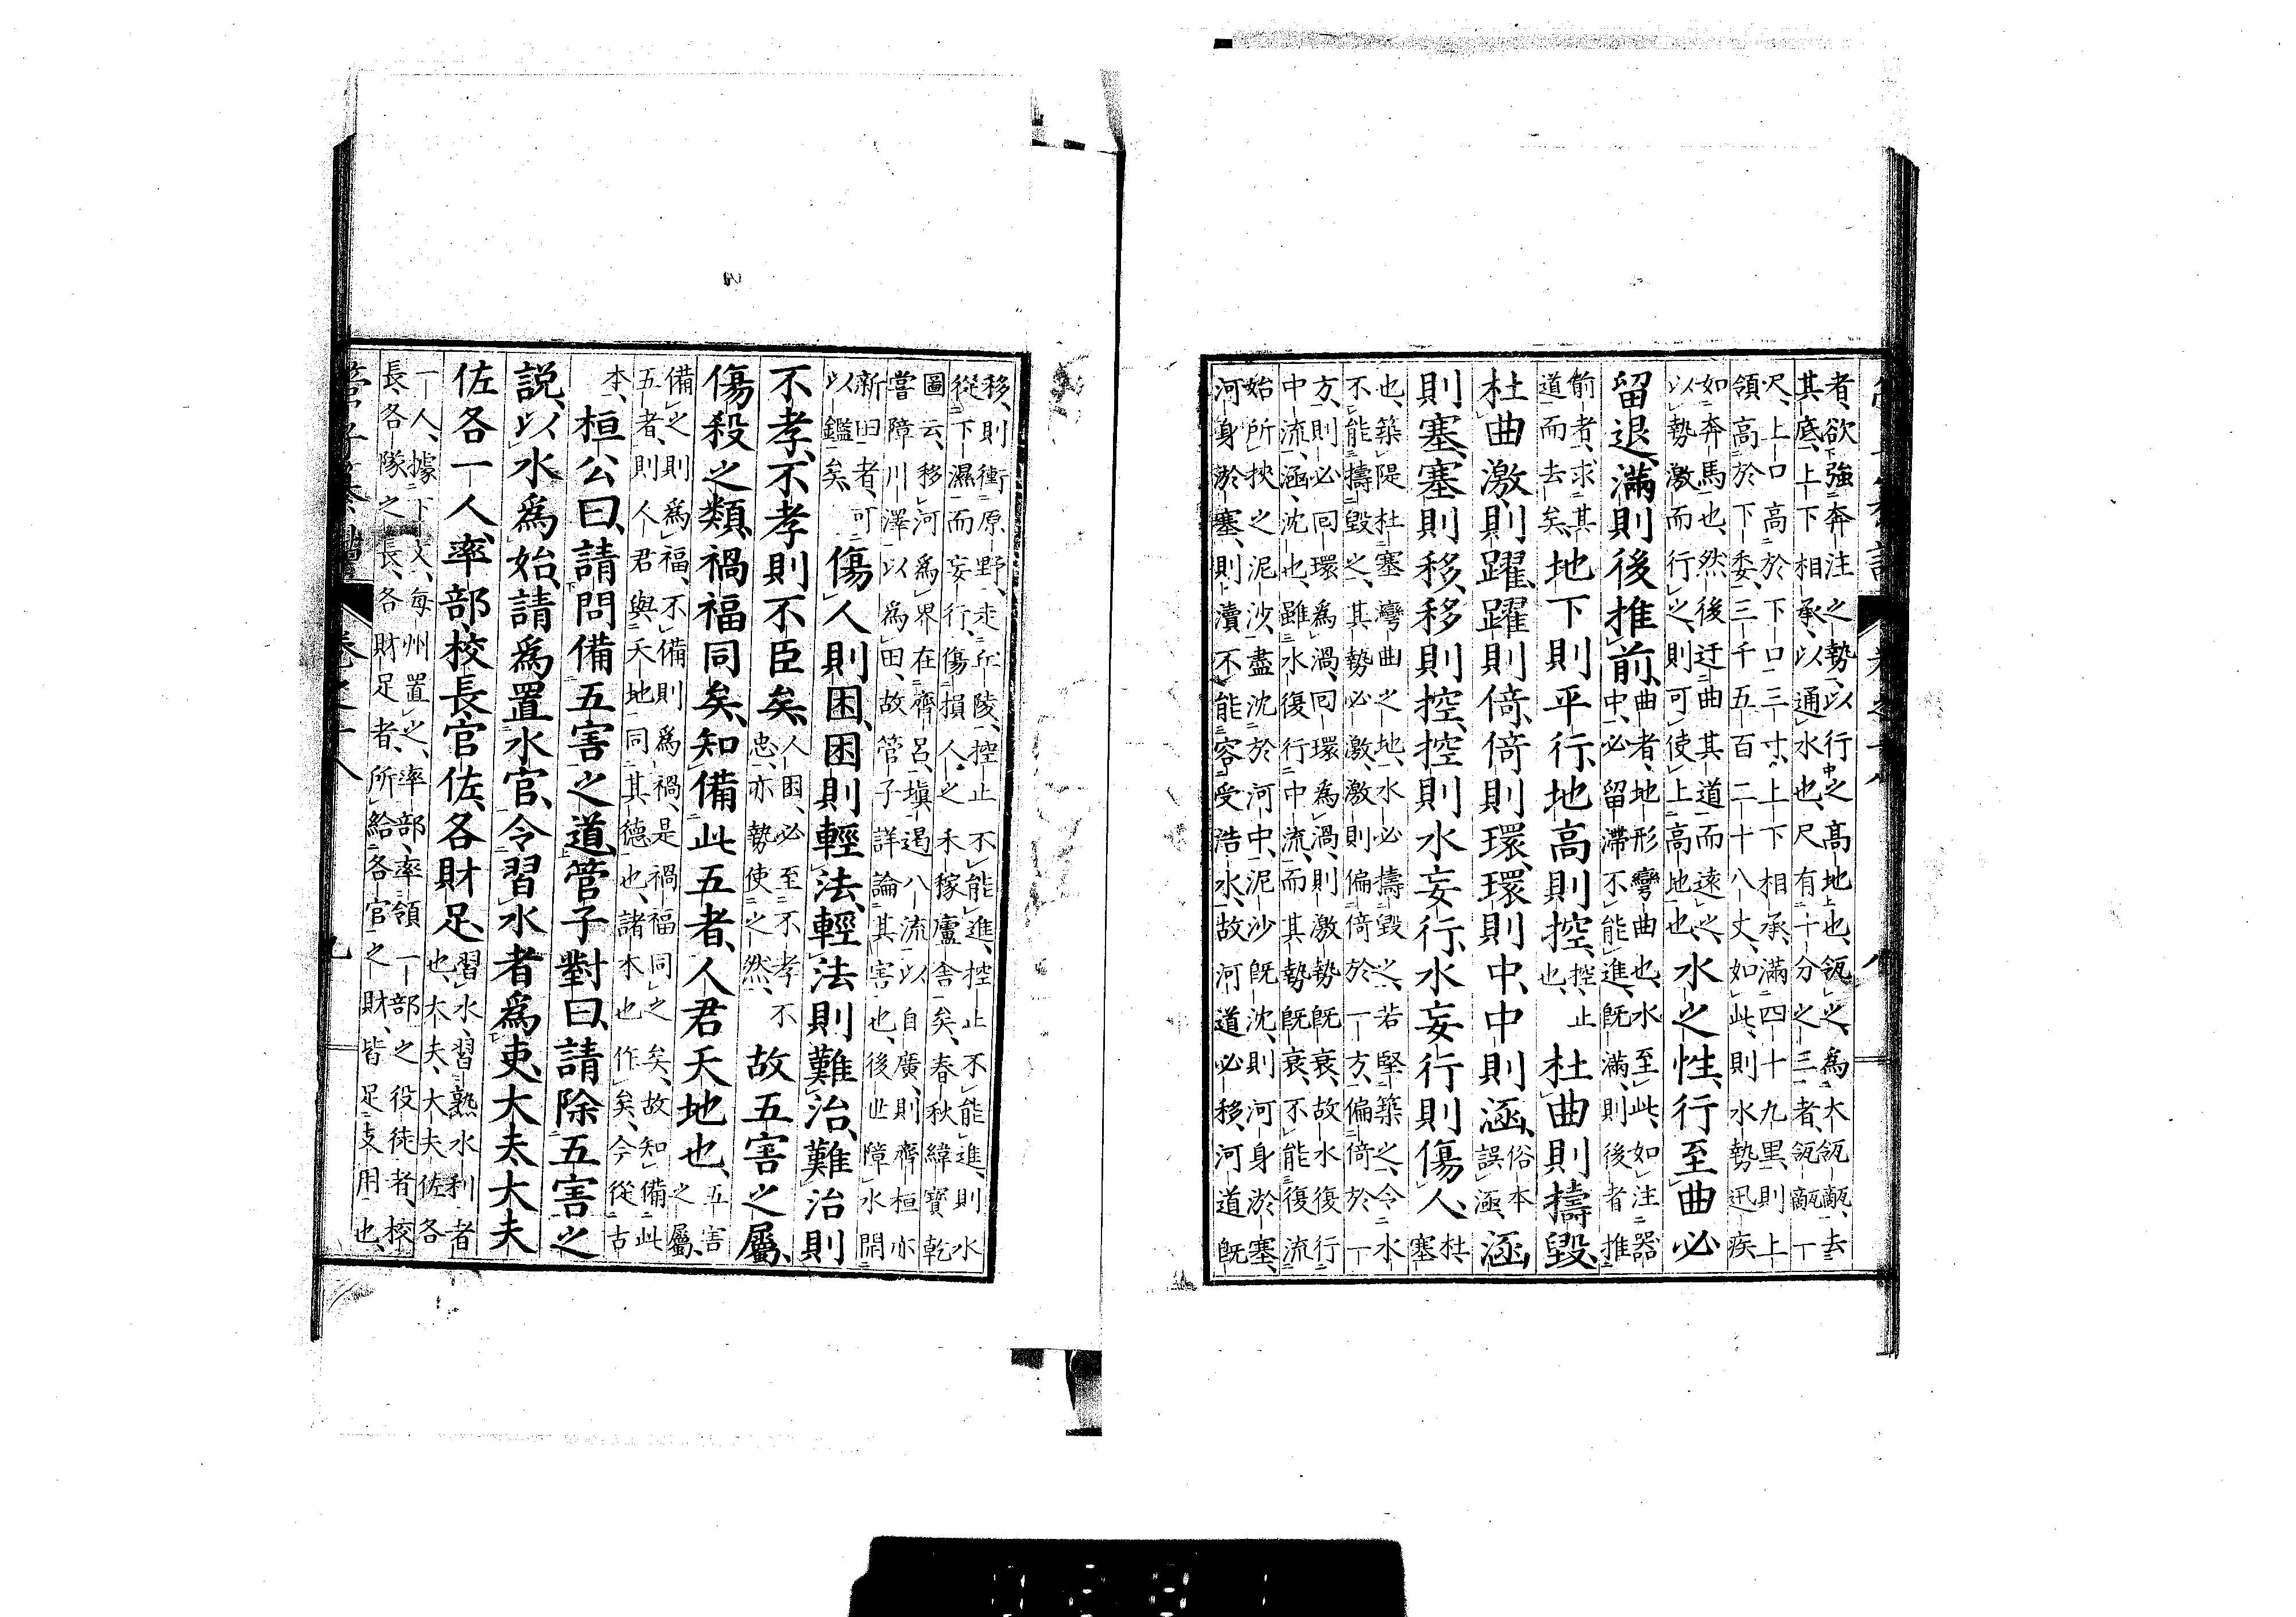 者、欲強奔注之勢、以行之高地也、瓴之、爲木瓴甋、去
其底、上下相承、以通水也、尺有十分之三者、瓴甋一
尺、上口高於下口三寸、上下相承、滿四十九里、則上
領高於下委、三千五百二十八丈、如此、則水勢迅疾
如奔馬也、然後迂曲其道而遠之、
以勢激而行之、則可使上高地也、
水之性、行至曲必
留退、滿則後推前、
曲者、地形彎曲也、水至此、如注器
中、必留滯不能進、既滿、則後者推
前者、求其
道而去矣、
地下則平行、地高則控、
控、止
也、
杜曲則擣毀、
杜曲激、則躍、躍則倚、倚則環、環則中、中則涵、
俗本
誤
涵
則塞、塞則移、移則控、控則水妄行、水妄行則傷人、
杜、
塞
也、築隄杜塞彎曲之地、水必擣毀之、若堅築之、令水
不能擣毀之、其勢必激、激則偏倚於一方、偏倚於一
方、則必回環爲渦、回環爲渦、則激勢既衰、故水復行
中流、涵、沈也、雖水復行中流、而其勢既衰、不能復流
始所挾之泥沙、盡沈於河中、泥沙既沈、則河身淤塞、
河身淤塞、則瀆不能容受浩水、故河道必移、河道既
管子纂詁 卷之十八 八
移、則衝原野、走丘陵、控止不能進、控止不能進、則水
從下濕而妄行、傷損人之禾稼廬舍矣、春秋緯寶乾
圖云、移河爲界在齊呂、塡遏八流以自廣、則齊桓亦
嘗障川澤以爲田、故管子詳論其害也、後世障水開
新田者、可
以鑑矣、
傷人則困、困則輕法、輕法則難治、難治則
不孝、不孝則不臣矣、
人困、必至不孝不
忠、亦勢使之然、
故五害之屬、
傷殺之類、禍福同矣、知備此五者、人君天地也、
五害
之屬、
備之則爲福、不備則爲禍、是禍福同之矣、故知備此
五者、則人君與天地同其德也、諸本也作矣、今從古
本、
桓公曰、請問備五害之道、管子對曰、請除五害之
説、以水爲始、請爲置水官、令習水者爲吏、大夫大夫
佐各一人、率部、校長、官佐、各財足、
習水、習熟水利者
也、大夫、大夫佐各
一人、據下文、每州置之、率部、率領一部之役徒者、校
長、各隊之長、各財足者、所給各官之財、皆足支用也、
管子纂詁 卷之十八 九